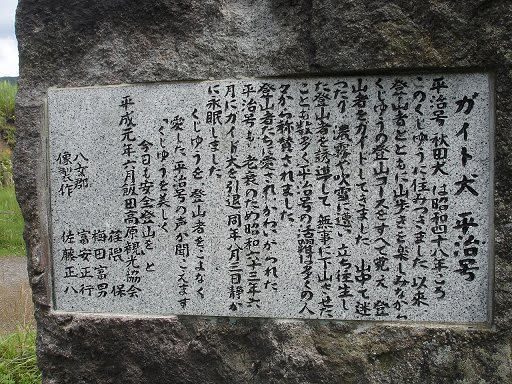 ガイド犬 平治号
平治号 秋田犬 は昭和四十八年ごろ
このくじゅうに住みつきました 以来
登山者とともに山歩きを楽しみながら
くじゅうの登山コースをすべて覚え 登
山者をガイドしてきました 山中で迷
ったり 濃霧や吹雪に遭い 立ち往生し
た登山者を誘導して 無事に下山させた
ことも数多く 平治号の活躍は多くの人
々から称賛されました
登山者たちに愛され かわいがられた
平治号も 老衰のため昭和六十三年六
月にガイド犬を引退 同年八月三日静か
に永眠しました
くじゅうを 登山者をこよなく
愛した 平治号の声が聞こえます
「くじゅうを美しく
今日も安全登山を」と
平成元年六月飯田高原観光協会
保
梅田富男
八女郡 富安正行
像製作 佐藤正八